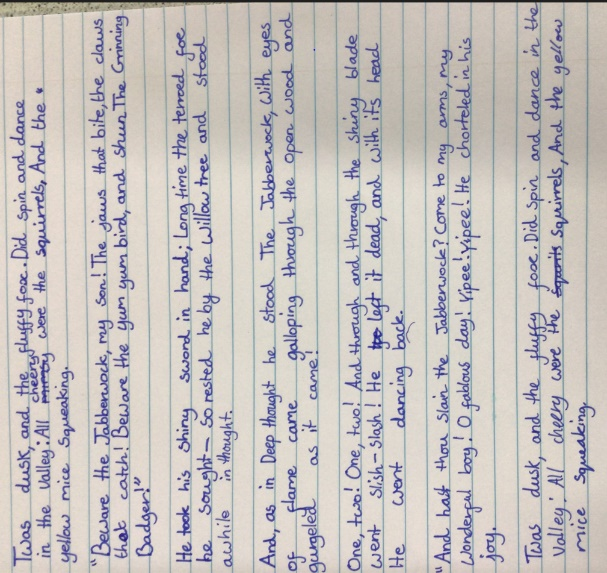 Twas dusk, and the fluffy foxe. Did spin and dance
in the Valley: All cheery were the squirrels, And the
yellow mice squeaking.
"Beware the Jabberwock, my son! The jaws that bite, the claws
that catch! Beware the yum yum bird, and shun The Cmining
Badger!"
He took his shiny sword in hand; Long time the terroed foe
he sought— So rested he by the willow tree and stood
awhile in thought.
And, as in Deep thought he stood The Jabberwock, With eyes
of flame came galloping through the open wood and
gurgeled as it came!
One, two! One, two! And through and through the shiny blade
went slish-slash! He left it dead, and with its head
He went dancing back.
"And hast thou slain the Jabberwock? Come to my arms, my
wonderful boy! O fablous day! Yipee! Yipee! He chorteled in his
joy.
Twas dusk, and the fluffy foxe. Did spin and dance in the
Valley: All cheery were the squirrels, And the yellow
mice squeaking.